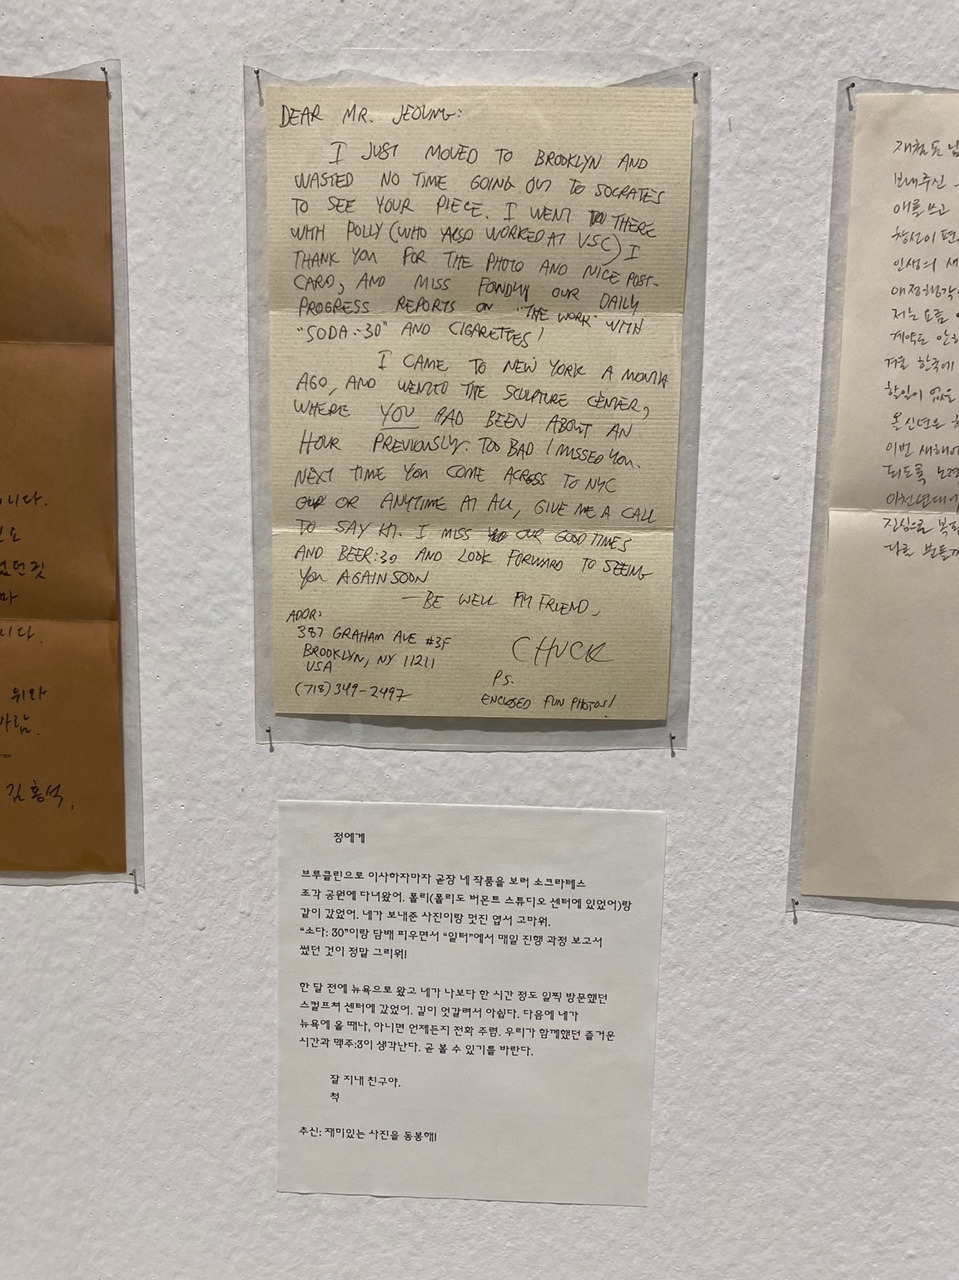 니다.
요
었던 것
마
니다.
위와
바람.
김홍석,
DEAR MR. JEOUNG:
I JUST MOVED TO BROOKLYN AND
WASTED NO TIME GOING OUT TO SOCRATES
TO SEE YOUR PIECE. I WENT THERE
WITH POLLY (WHO ALSO WORKED AT VSC) I
THANK YOU FOR THE PHOTO AND NICE POST-
CARD, AND MISS FONDLY OUR DAILY
PROGRESS REPORTS ON "THE WORK" WITH
"SODA:30" AND CIGARETTES!
I CAME TO NEW YORK A MONTH
AGO, AND WENT TO THE SCULPTURE CENTER,
WHERE YOU HAD BEEN ABOUT AN
HOUR PREVIOUSLY. TOO BAD I MISSED YOU.
NEXT TIME YOU COME ACROSS TO NYC
OR ANYTIME AT ALL, GIVE ME A CALL
TO SAY HI. I MISS OUR GOOD TIMES
AND BEER:30 AND LOOK FORWARD TO SEEING
YOU AGAIN SOON
—BE WELL MY FRIEND,
CHUCK
ADDR:
387 GRAHAM AVE #3F
BROOKLYN, NY 11211
USA
(718) 349-2497
P.S.
ENCLOSED FUN PHOTOS!
정에게
브루클린으로 이사하자마자 곧장 네 작품을 보러 소크라테스
조각 공원에 다녀왔어. 폴리(폴리도 버몬트 스튜디오 센터에 있었어)랑
같이 갔었어. 네가 보내준 사진이랑 멋진 엽서 고마워.
"소다: 30"이랑 담배 피우면서 "일터"에서 매일 진행 과정 보고서
썼던 것이 정말 그리워!
한 달 전에 뉴욕으로 왔고 네가 나보다 한 시간 정도 일찍 방문했던
스컬프쳐 센터에 갔었어. 길이 엇갈려서 아쉽다. 다음에 네가
뉴욕에 올 때나, 아니면 언제든지 전화 주렴. 우리가 함께했던 즐거운
시간과 맥주:3이 생각난다. 곧 볼 수 있기를 바란다.
잘 지내 친구야.
척
추신: 재미있는 사진을 동봉해!
보내주신
애를 쓰고
인생의 새
저는 요즘
계약도 안
겨울 한국에
할인이 없을
이번 새해에
되도록 노력
진심으로
다른 분들께